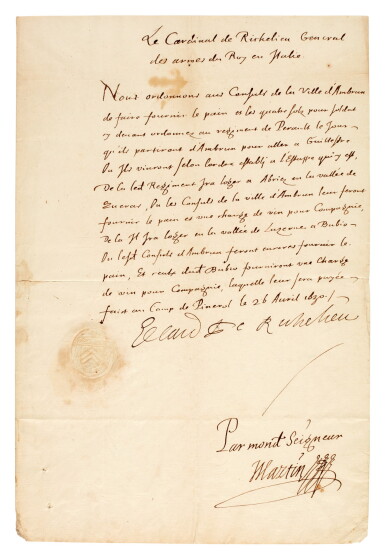 Le Cardinal de Richelieu General
des armes du Roy en Italie
Nous ordonnons aux Consulz de la Ville d'Ambrun
de faire fournir le pain et les quatre solz pour soldat
y devant ordonnez au regiment de le Jour
qu'ils partiront d'Ambrun pour aller a
Ou Ilz viuront selon lordre establi a qui y est,
De la led. Regiment Ira loger a Abries en la vallée de
Queras, Ou les Consulz de la ville d'Ambrun leur feront
fournir le pain et une charge de vin pour Compagnie,
De la Il Ira loger en la vallée de Luzerne a Bubio
Ou lesd. Consulz d'Ambrun feront encores fournir le
pain, Et ceulx dud. Bubio fourniront une Charge
de vin pour Compagnie, laquelle leur sera payée
faict au Camp de Pinerol le 26 Avril 1630
Le Card. de Richelieu
Par mondt Seigneur
Martin